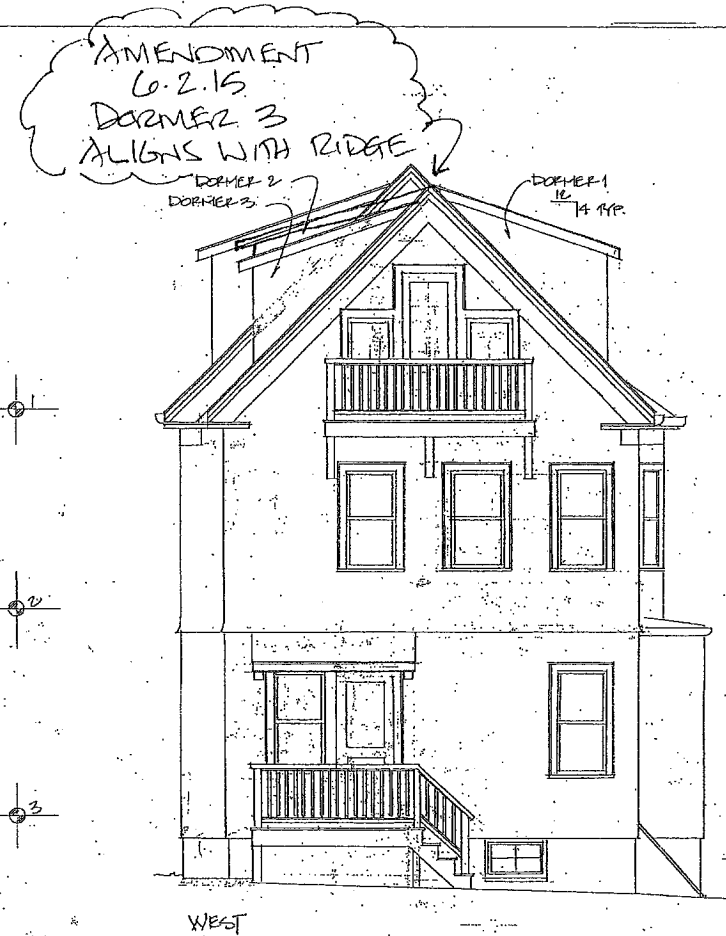 AMENDMENT
6.2.15
DORMER 3
ALIGNS WITH RIDGE
DORMER 2
DORMER 3
DORMER 1
12
4 TYP.
1
2
3
WEST